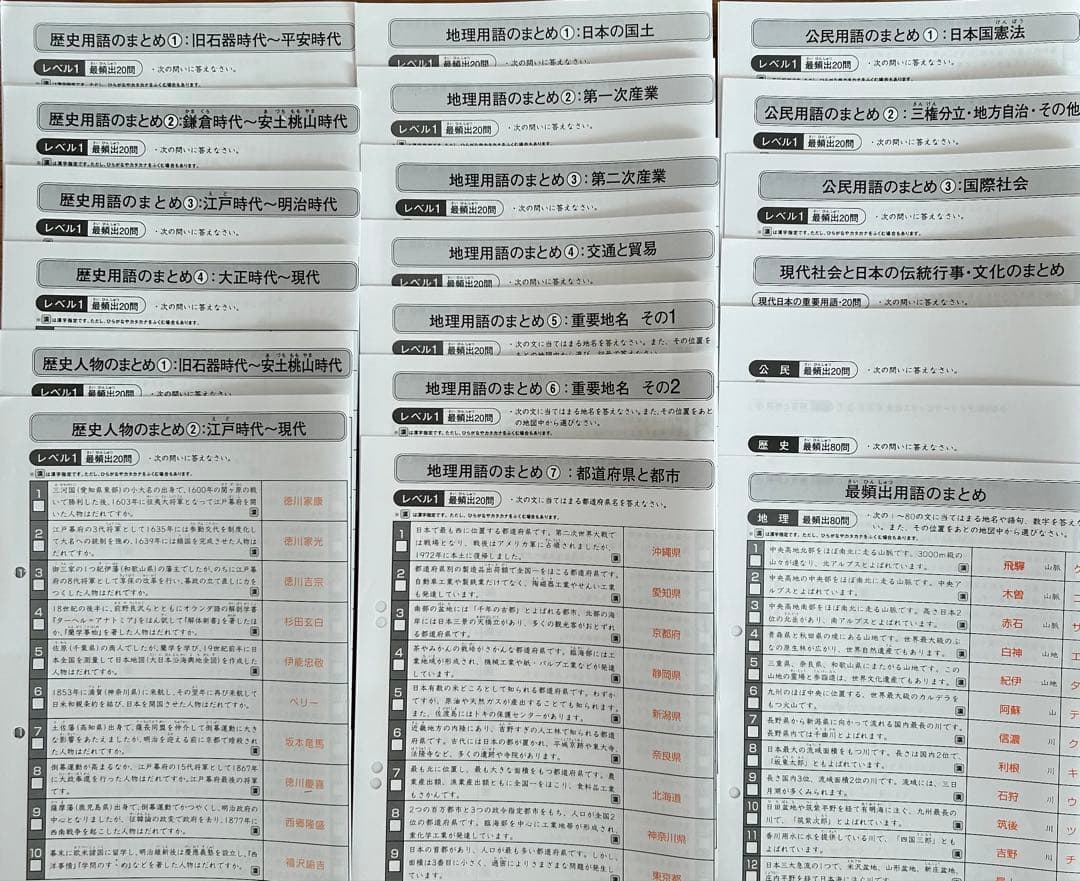 歴史用語のまとめ①:旧石器時代〜平安時代
レベル1 最頻出20問 ・次の問いに答えなさい。
歴史用語のまとめ②:鎌倉時代〜安土桃山時代
レベル1 最頻出20問 ・次の問いに答えなさい。
※漢は漢字指定です。ただし、ひらがなやカタカナをふくむ場合もあります。
歴史用語のまとめ③:江戸時代〜明治時代
レベル1 最頻出20問 ・次の問いに答えなさい。
歴史用語のまとめ④:大正時代〜現代
レベル1 最頻出20問 ・次の問いに答えなさい。
※漢は漢字指定です。ただし、ひらがなやカタカナをふくむ場合もあります。
歴史人物のまとめ①:旧石器時代〜安土桃山時代
レベル1 最頻出20問 ・次の問いに答えなさい。
歴史人物のまとめ②:江戸時代〜現代
レベル1 最頻出20問 ・次の問いに答えなさい。
※漢は漢字指定です。ただし、ひらがなやカタカナをふくむ場合もあります。
1 三河国(愛知県東部)の小大名の出身で、1600年の関ヶ原の戦
いで勝利した後、1603年に征夷大将軍となって江戸幕府を開
いた人物はだれですか。 漢 徳川家康
2 江戸幕府の3代将軍として1635年には参勤交代を制度化し
て大名への統制を強め、1639年には鎖国を完成させた人物は
だれですか。 漢 徳川家光
3 御三家の1つ紀伊藩(和歌山県)の藩主でしたが、のちに江戸幕
府の8代将軍として享保の改革を行い、幕政の立て直しに力を
つくした人物はだれですか。 漢 徳川吉宗
4 18世紀の後半に、前野良沢らとともにオランダ語の解剖学書
『ターヘル=アナトミア』をほん訳して『解体新書』を著したほ
か、『蘭学事始』を著した人物はだれですか。 漢 杉田玄白
5 佐原(千葉県)の商人でしたが、蘭学を学び、19世紀前半に日
本全国を測量して日本地図(大日本沿海輿地全図)を作成した
人物はだれですか。 漢 伊能忠敬
6 1853年に浦賀(神奈川県)に来航し、その翌年に再び来航して
日米和親条約を結び、日本を開国させた人物はだれですか。 ペリー
7 土佐藩(高知県)出身で、薩長同盟を仲介して倒幕運動に大き
な影響をあたえましたが、明治を迎える前に京都で暗殺され
た人物はだれですか。 漢 坂本竜馬
8 倒幕運動が高まるなか、江戸幕府の15代将軍として1867年
に大政奉還を行った人物はだれですか。江戸幕府最後の将軍
です。 漢 徳川慶喜
9 薩摩藩(鹿児島県)出身で、倒幕運動でかつやくし、明治政府の
中心となりましたが、征韓論の政変で政府を去り、1877年に
西南戦争を起こした人物はだれですか。 漢 西郷隆盛
10 幕末に欧米諸国に留学し、明治維新後は慶應義塾を設立し、『西
洋事情』『学問のすゝめ』などを著した人物はだれですか。 漢 福沢諭吉
地理用語のまとめ①:日本の国土
レベル1 最頻出20問 ・次の問いに答えなさい。
地理用語のまとめ②:第一次産業
レベル1 最頻出20問 ・次の問いに答えなさい。
地理用語のまとめ③:第二次産業
レベル1 最頻出20問 ・次の問いに答えなさい。
地理用語のまとめ④:交通と貿易
レベル1 最頻出20問 ・次の問いに答えなさい。
地理用語のまとめ⑤:重要地名 その1
レベル1 最頻出20問 ・次の文に当てはまる地名を答えなさい。また、その位置を
地理用語のまとめ⑥:重要地名 その2
レベル1 最頻出20問 ・次の文に当てはまる地名を答えなさい。また、その位置をあと
の地図中から選びなさい。
地理用語のまとめ⑦:都道府県と都市
レベル1 最頻出20問 ・次の文に当てはまる都道府県名を答えなさい。
※漢は漢字指定です。ただし、ひらがなやカタカナをふくむ場合もあります。
1 日本で最も西に位置する都道府県です。第二次世界大戦で
は戦場となり、戦後はアメリカ軍に占領されましたが、
1972年に本土に復帰しました。 漢 沖縄県
2 都道府県別の製造品出荷額で全国一をほこる都道府県です。
自動車工業や製鉄業だけでなく、陶磁器工業やせんい工業
も発達しています。 漢 愛知県
3 南部の盆地には「千年の古都」とよばれる都市、北部の海
岸には日本三景の天橋立があり、多くの観光客がおとずれ
る都道府県です。 漢 京都府
4 茶やみかんの栽培がさかんな都道府県です。臨海部には工
業地域が形成され、機械工業や紙・パルプ工業などが発達し
ています。 漢 静岡県
5 日本有数の米どころとして知られる都道府県です。わずか
ですが、原油や天然ガスが産出することでも知られます。
また、佐渡島にはトキの保護センターがあります。 漢 新潟県
6 近畿地方の内陸にあり、吉野すぎの人工林で知られる都道
府県です。古代には日本の都が置かれ、平城京跡や東大寺、
法隆寺など、多くの遺跡や寺院があります。 漢 奈良県
7 最も北に位置し、最も大きな面積をもつ都道府県です。農
業産出額、漁業産出額ともに全国一をほこり、食料品工業
もさかんです。 漢 北海道
8 2つの百万都市と3つの政令指定都市をもち、人口が全国2
位の都道府県です。臨海部を中心に工業地帯が形成され、
重化学工業が発達しています。 漢 神奈川県
9 日本の首都があり、人口が最も多い都道府県です。しかし、
面積は3番目に小さく、過密によりさまざまな問題が発生し
ています。 東京都
公民用語のまとめ①:日本国憲法
レベル1 最頻出20問 ・次の問いに答えなさい。
公民用語のまとめ②:三権分立・地方自治・その他
レベル1 最頻出20問 ・次の問いに答えなさい。
公民用語のまとめ③:国際社会
レベル1 最頻出20問 ・次の問いに答えなさい。
※漢は漢字指定です。ただし、ひらがなやカタカナをふくむ場合もあります。
現代社会と日本の伝統行事・文化のまとめ
現代日本の重要用語・20問 ・次の問いに答えなさい。
公民 最頻出20問 ・次の問いに答えなさい。
歴史 最頻出80問 ・次の問いに答えなさい。
最頻出用語のまとめ
地理 最頻出80問 ・次の1〜80の文に当てはまる地名や語句、数字を答え
また、その位置をあとの地図中から選びなさい。
※漢は漢字指定です。ただし、ひらがなやカタカナをふくむ場合もあります。
1 中央高地北部をほぼ南北に走る山脈です。3000m級の
山々が連なり、北アルプスとよばれています。 飛騨 山脈
2 中央高地の中央部をほぼ南北に走る山脈です。中央ア
ルプスとよばれています。 漢 木曽 山脈
3 中央高地南部をほぼ南北に走る山脈です。高さ日本2
位の北岳があり、南アルプスとよばれています。 漢 赤石 山脈
4 青森県と秋田県の境にある山地です。世界最大級のぶ
なの原生林が広がり、世界自然遺産でもあります。 漢 白神 山地
5 三重県、奈良県、和歌山県にまたがる山地です。この
山地の霊場と参詣道は、世界文化遺産でもあります。 漢 紀伊 山地
6 九州のほぼ中央に位置する、世界最大級のカルデラを
もつ火山です。 漢 阿蘇 山
7 長野県から新潟県に向かって流れる国内最長の川です。
長野県内では千曲川とよばれています。 漢 信濃 川
8 日本最大の流域面積をもつ川です。長さは国内2位で、
「坂東太郎」ともよばれています。 漢 利根 川
9 長さ国内3位、流域面積2位の川です。流域には、三日
月湖が多くみられます。 漢 石狩 川
10 日田盆地や筑紫平野を経て有明海に注ぐ、九州最長の
川で、「筑紫次郎」とよばれます。 漢 筑後 川
11 香川用水に水を提供している川で、「四国三郎」とも
よばれています。 漢 吉野 川
12 日本三大急流の1つで、米沢盆地、山形盆地、新庄盆地、
庄内平野を経て日本海に注ぐ川です。